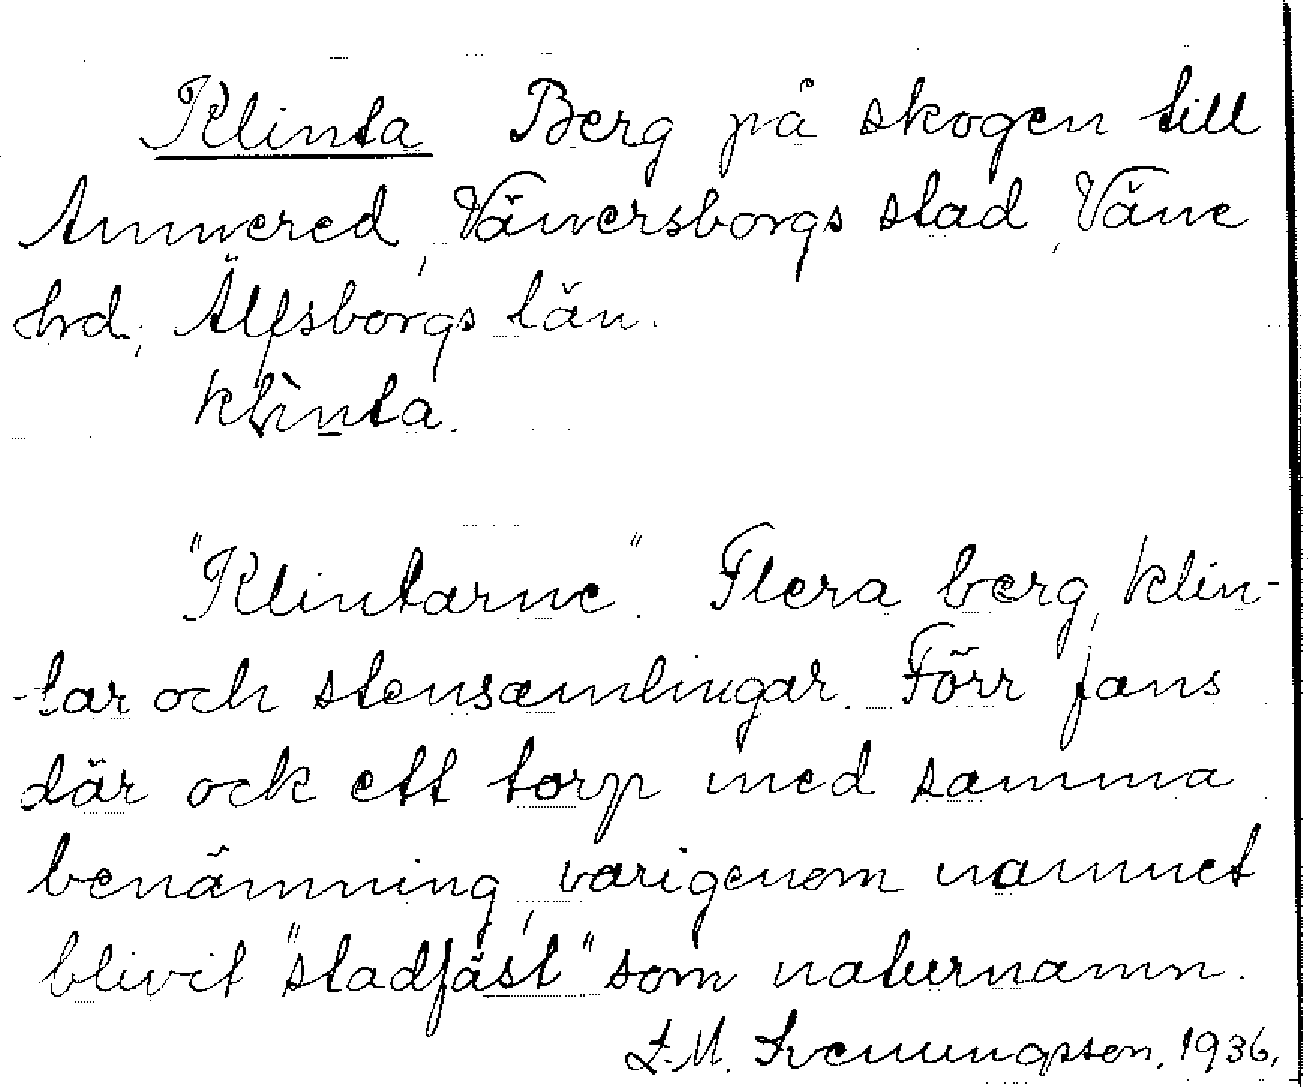 Klinta Berg på skogen till
Annnered, Vänersborgs stad, Väne
hrd, Älfsborgs län.
klìnta.
"Klintarne". Flera berg, klin-
-tar och stensamlingar. Förr fans
där ock ett torp med samma
benämning, varigenom namnet
blivit "stadfäst" som naturnamn.
L.M. Svenungsson, 1936.